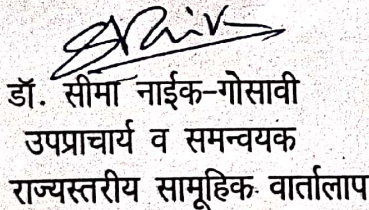 डॉ. सीमा नाईक-गोसावी
उपप्राचार्य व समन्वयक
राज्यस्तरीय सामूहिक वार्तालाप